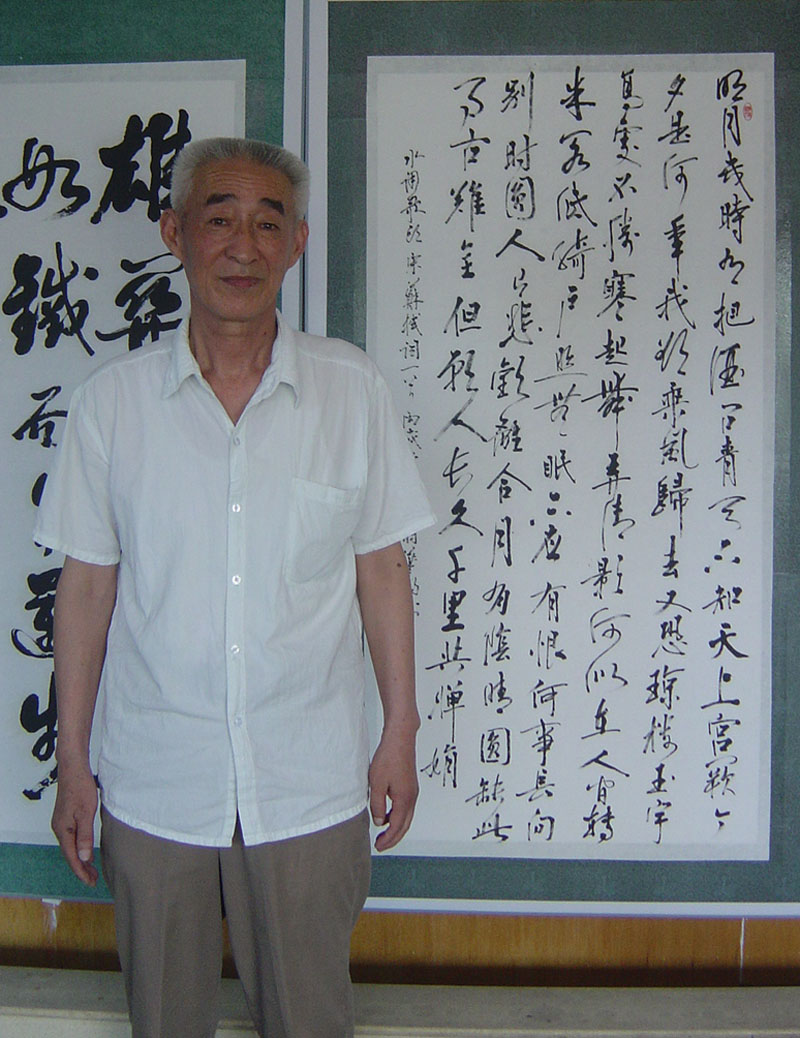 明月幾時有把酒问青天不知天上宮闕今
夕是何年我欲乘風歸去又恐琼楼玉宇
高處不勝寒起舞弄清影何似在人间轉
朱阁低綺户照無眠不应有恨何事長向
别時圆人有悲歡離合月有陰晴圆缺此
事古難全但願人長久千里共嬋娟
水調歌頭宋蘇軾詞一首丙戌
雄關
如鐵而今邁步